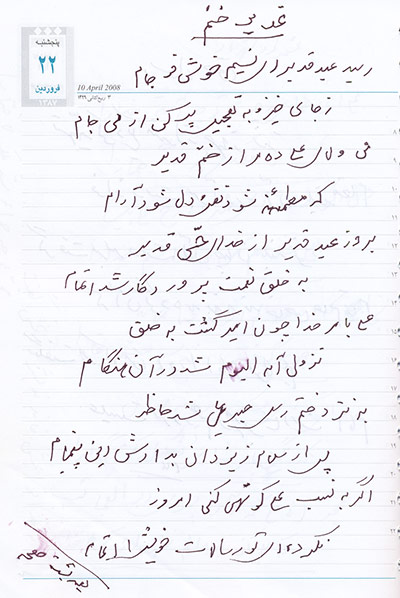 غدیر خم
پنجشنبه
۲۲
فروردین
۱۳۸۷
10 April 2008
رسید عید قدیر ای نسیم خوش فرجام
ز جای خیز و به تعجیل پر کن از می جام
می ولای علی ده مرا از خم قدیر
که مطمئنه شود نفس و دل شود آرام
بروز عید قدیر از خدای حی قدیر
به خلق نعمت پروردگار شد اتمام
علی بامر خدا چون امیر گشت به خلق
نزول آیه الیوم شد در آن هنگام
به نزد ختم رسل جبرئیل شد حاظر
پس از سلام ز یزدان بدادش این پیغام
اگر به نصب علی کوتهی کنی امروز
نکرده‌ای تو رسالات خویش را اتمام
بقیه پشت صفحه